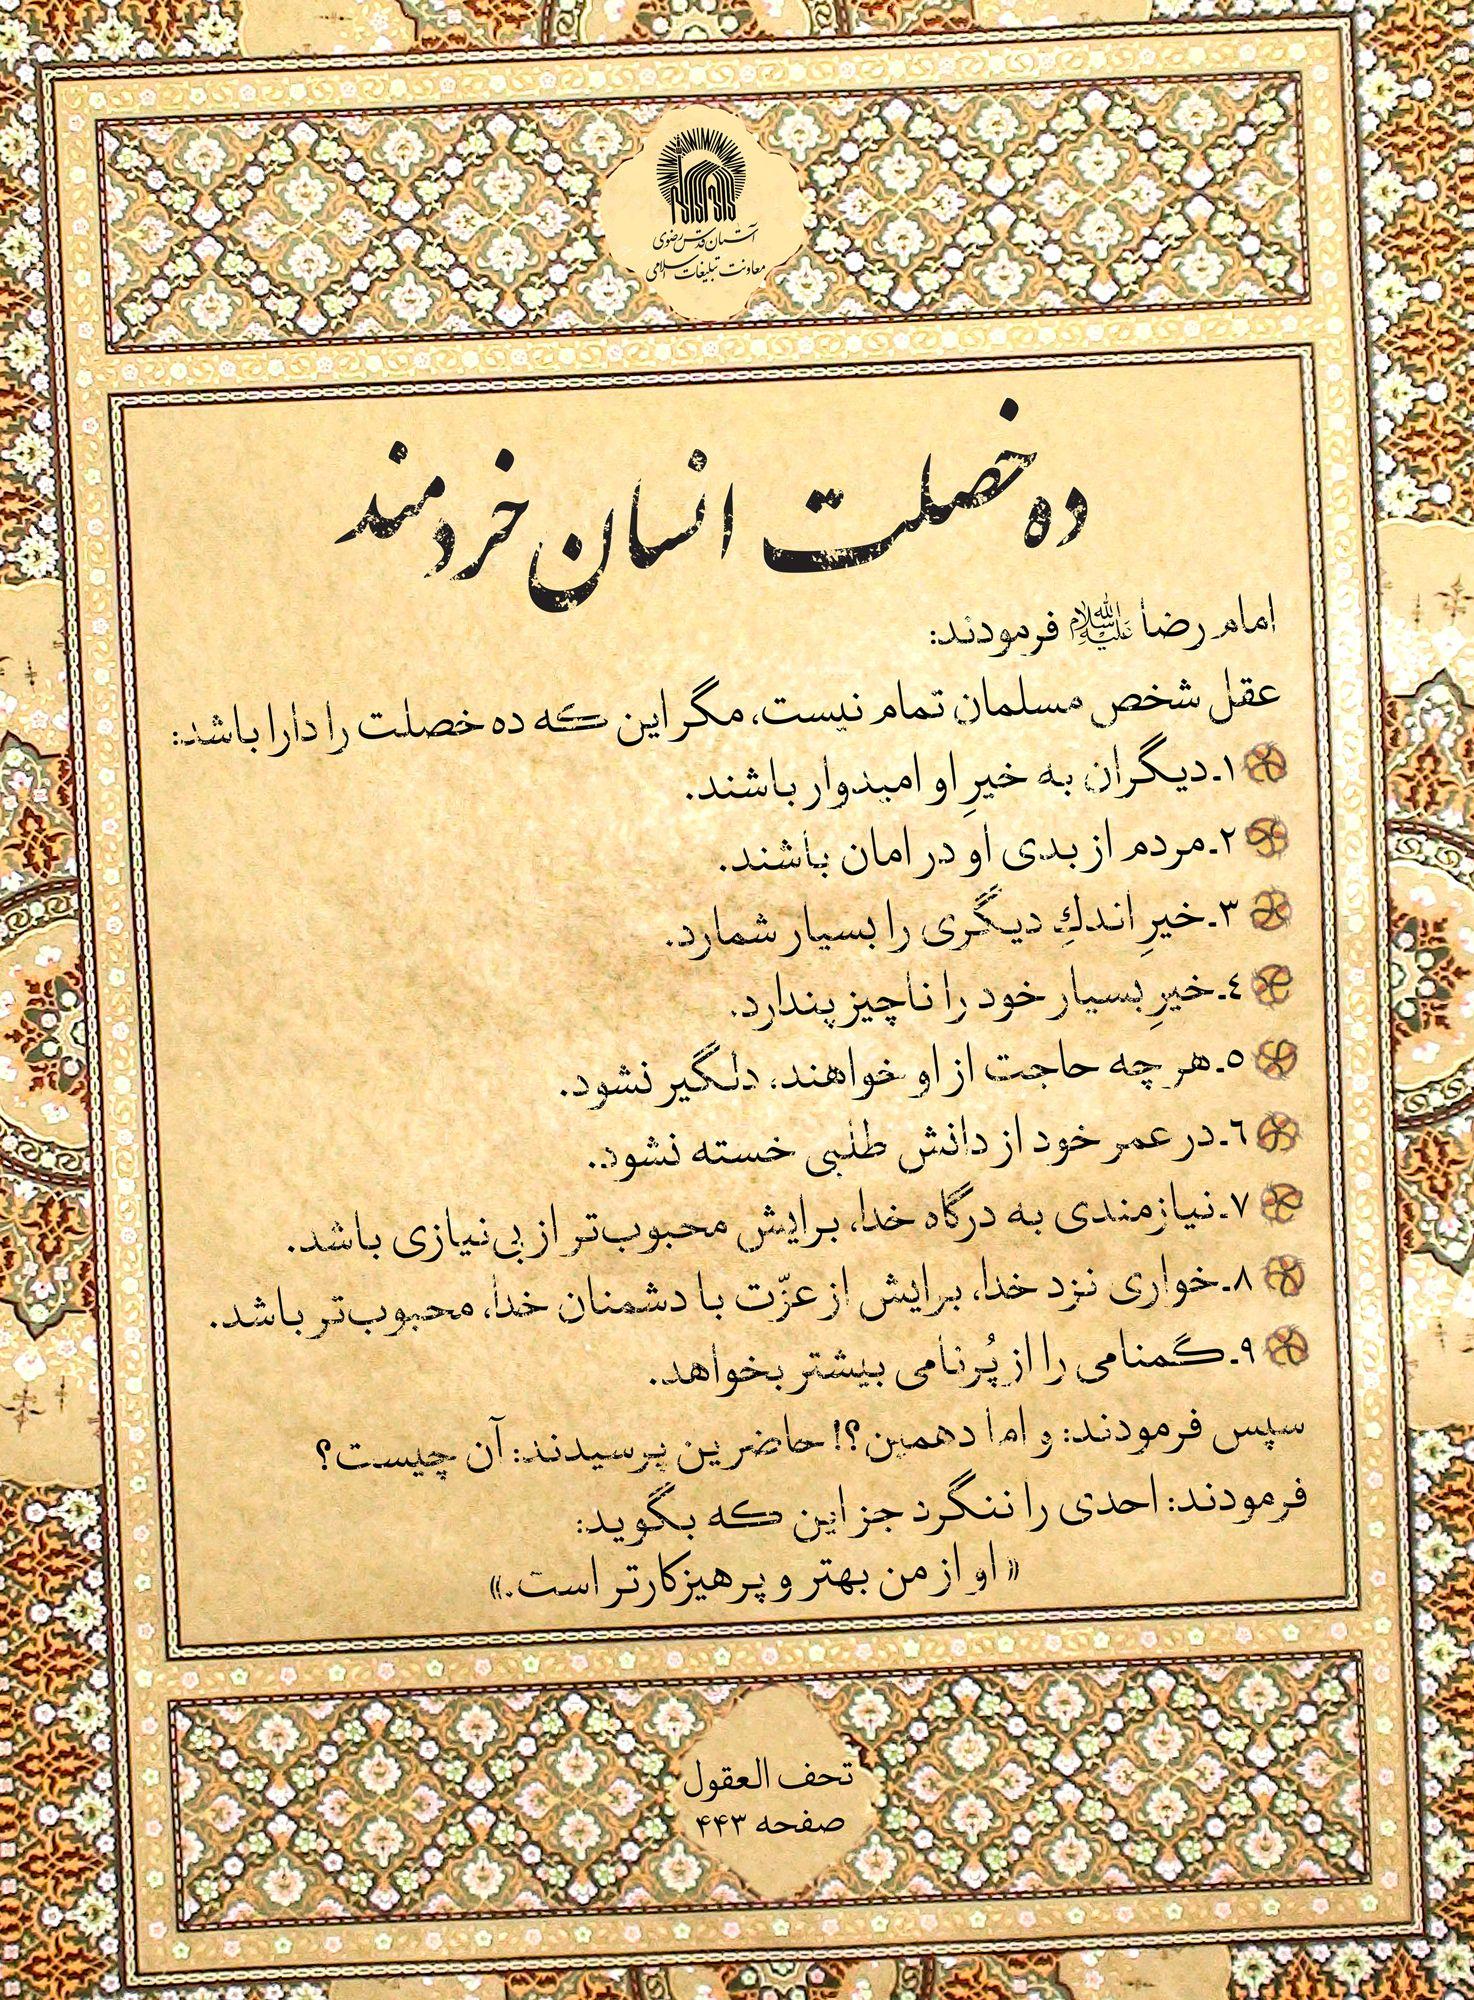 آستان قدس رضوی
معاونت تبلیغات اسلامی
ده خصلت انسان خردمند
امام رضا علیه‌السلام فرمودند:
عقل شخص مسلمان تمام نیست، مگر این که ده خصلت را دارا باشد:
۱ـ دیگران به خیرِ او امیدوار باشند.
۲ـ مردم از بدی او در امان باشند.
۳ـ خیرِ اندكِ دیگری را بسیار شمارد.
٤ـ خیرِ بسیار خود را ناچیز پندارد.
٥ـ هر چه حاجت از او خواهند، دلگیر نشود.
٦ـ در عمر خود از دانش طلبی خسته نشود.
۷ـ نیازمندی به درگاه خدا، برایش محبوب‌تر از بی‌نیازی باشد.
۸ـ خواری نزد خدا، برایش از عزّت با دشمنان خدا، محبوب‌تر باشد.
۹ـ گمنامی را از پُرنامی بیشتر بخواهد.
سپس فرمودند: و اما دهمین؟! حاضرین پرسیدند: آن چیست؟
فرمودند: احدی را ننگرد جز این که بگوید:
«او از من بهتر و پرهیزکارتر است.»
تحف العقول
صفحه ۴۴۳